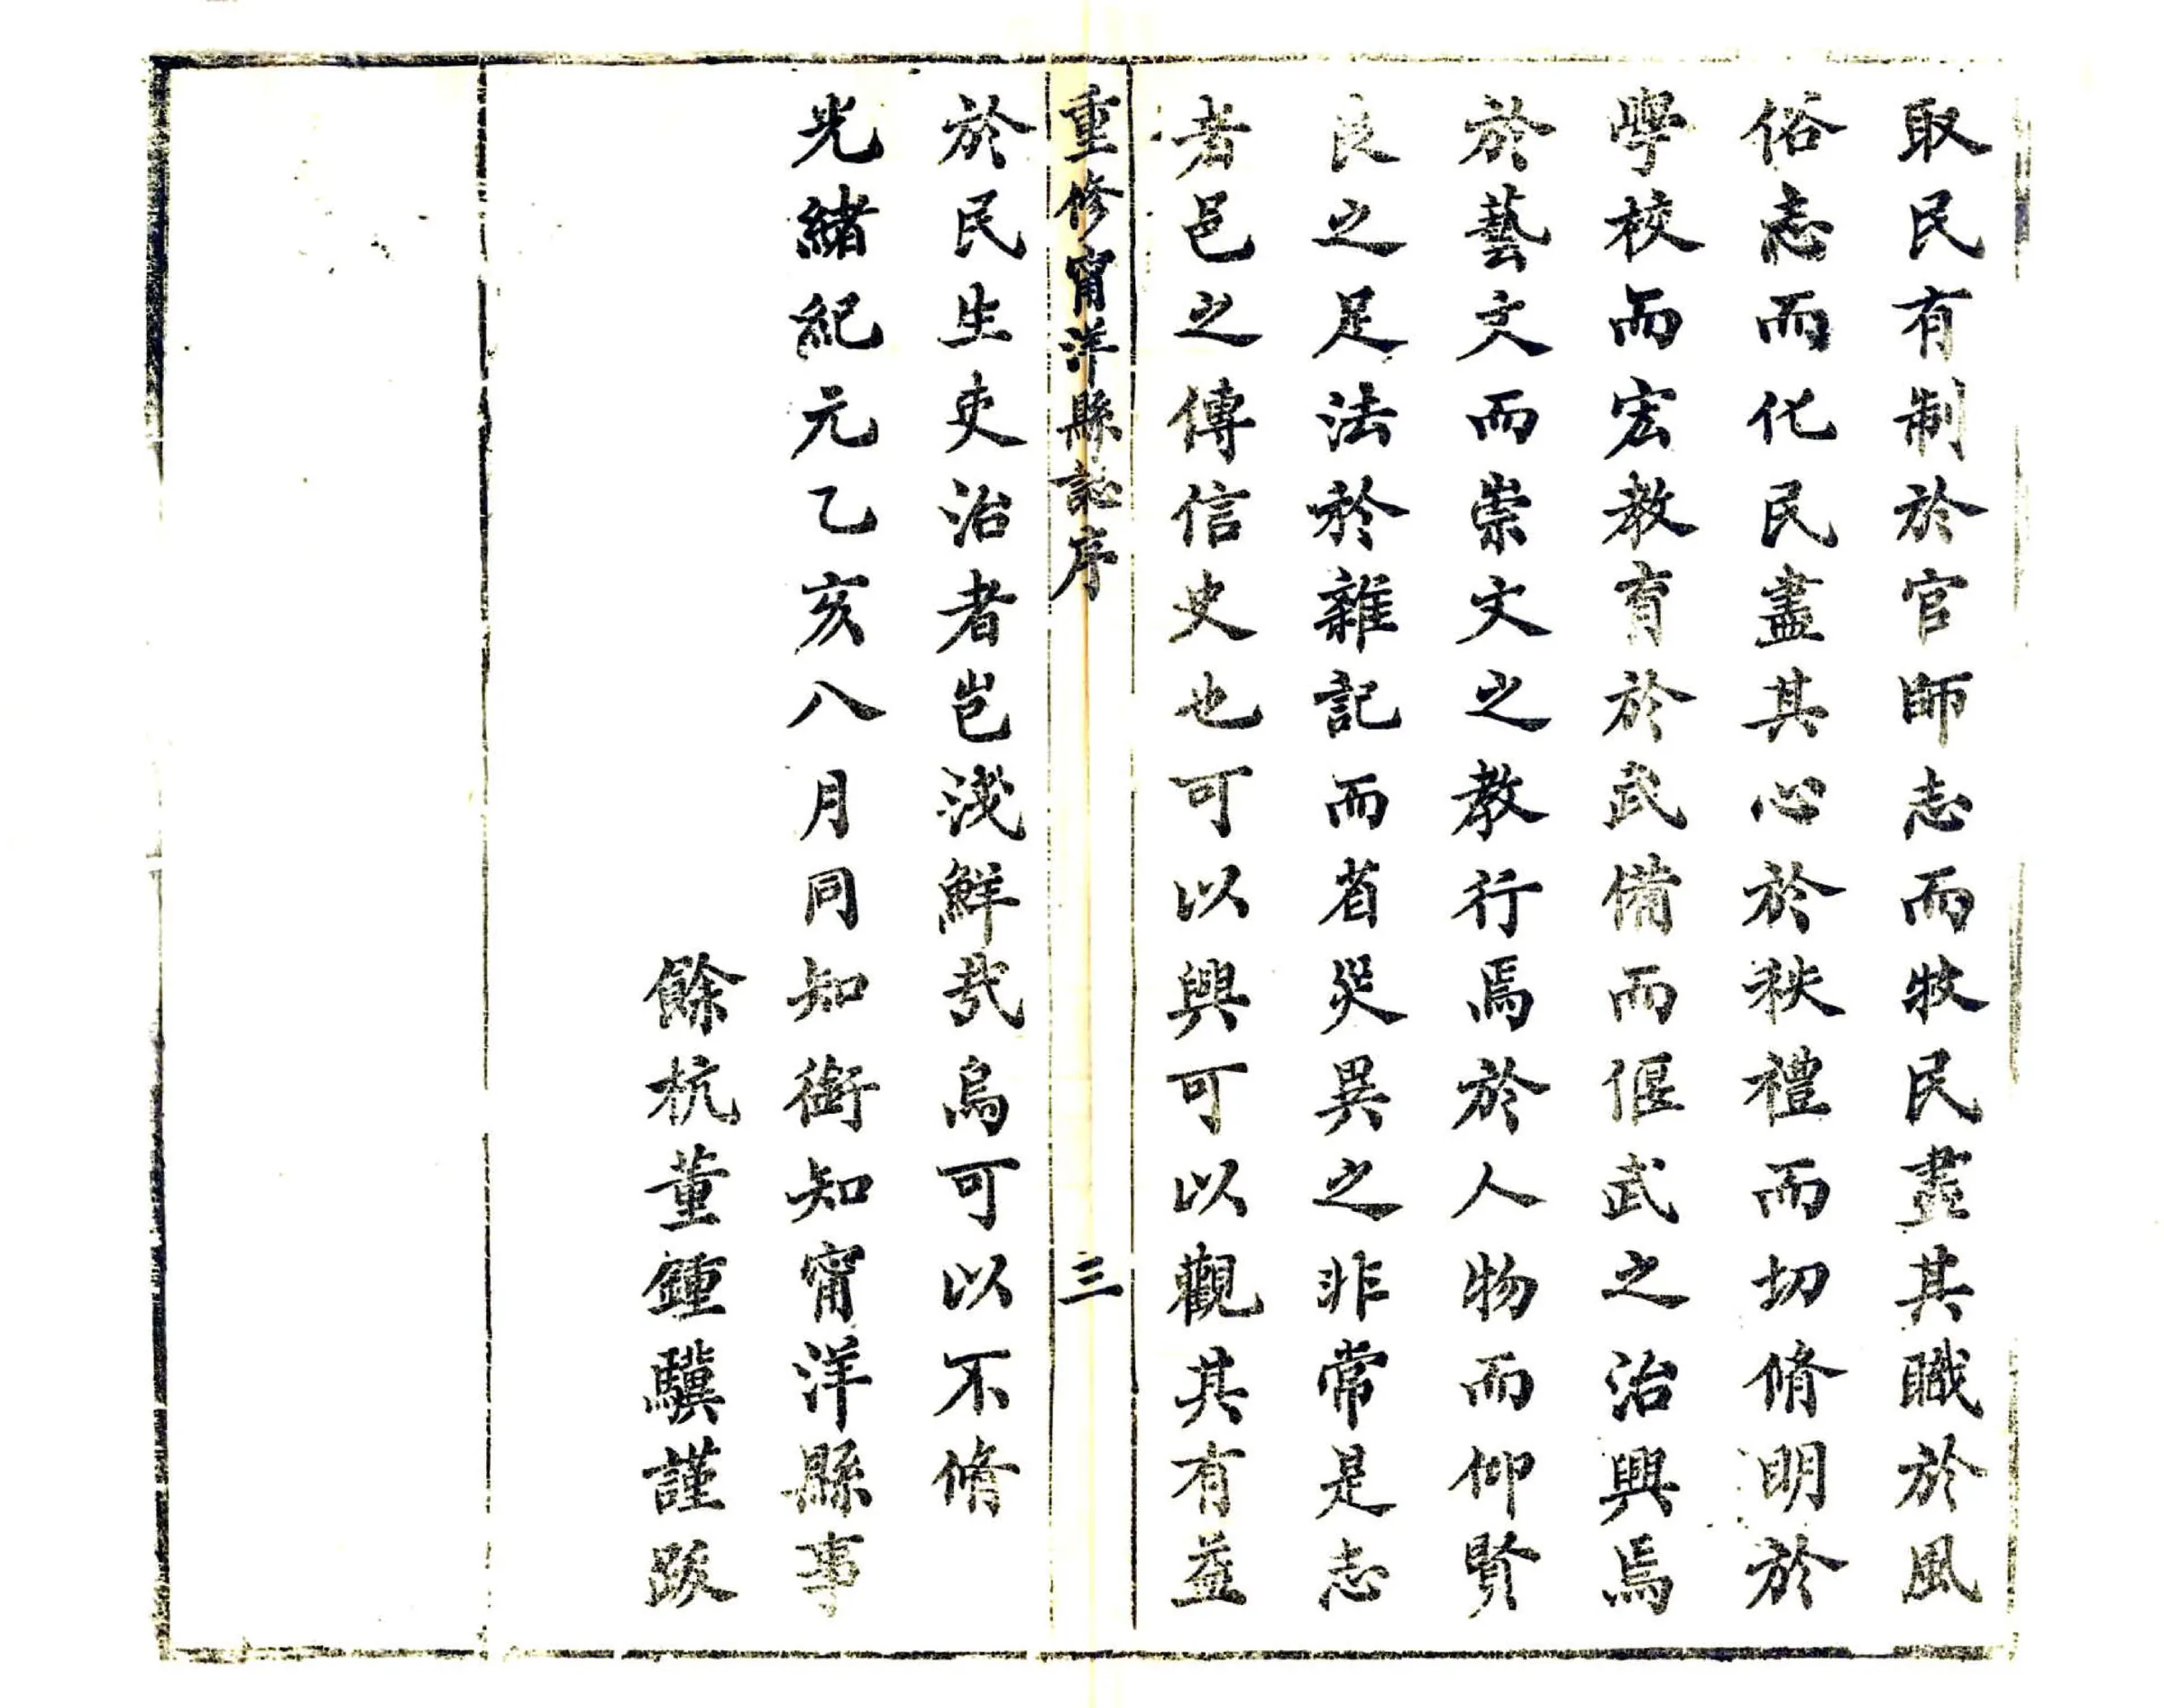 取民有制於官師志而牧民盡其職於風
俗志而化民盡其心於秩禮而切脩明於
學校而宏教育於武備而偃武之治興焉
於藝文而崇文之教行焉於人物而仰賢
良之足法於雜記而省災異之非常是志
者邑之傳信史也可以興可以觀其有益
重修甯洋縣誌序
三
於民生吏治者豈淺鮮哉烏可以不脩
光緒紀元乙亥八月同知銜知甯洋縣事
餘杭董鍾驥謹跋